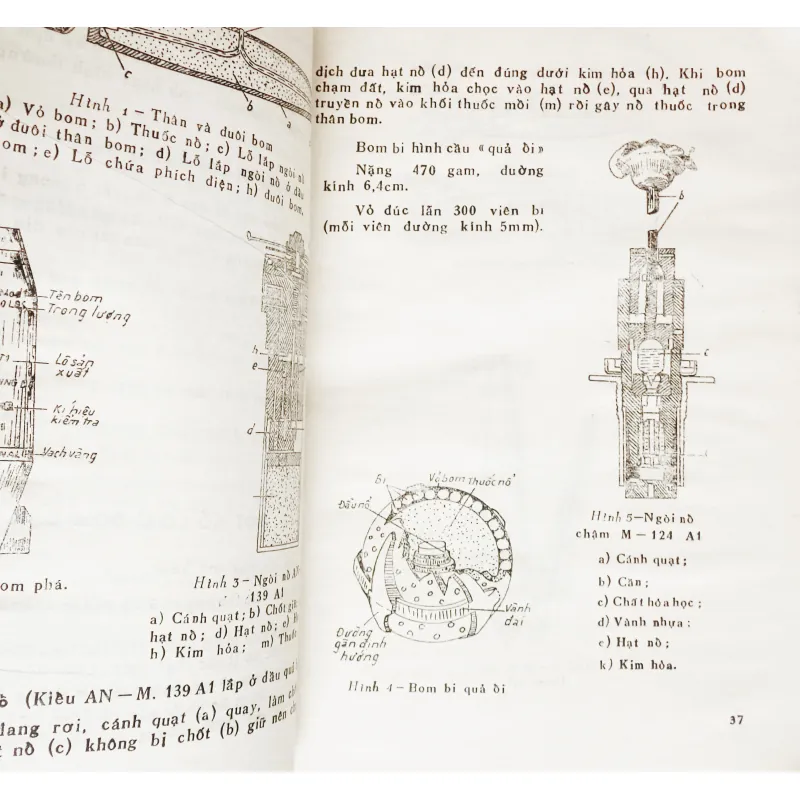 c
b
a
Hình 1 — Thân và đuôi bom
a) Vỏ bom; b) Thuốc nổ; c) Lỗ lắp ngòi nổ
ở đuôi thân bom; d) Lỗ lắp ngòi nổ ở đầu
bom; e) Lỗ chứa phích điện; h) đuôi bom.
Tên bom
Trọng lượng
Lô sản
xuất
Kí hiệu
kiểm tra
Vạch vàng
om phá.
h
e
d
Hình 3 — Ngòi nổ AN
139 A1
a) Cánh quạt; b) Chốt giữ
hạt nổ; d) Hạt nổ; e) H
h) Kim hỏa; m) Thuốc
(Kiểu AN — M. 139 A1 lắp ở đầu quả
đang rơi, cánh quạt (a) quay, làm
nổ (c) không bị chốt (b) giữ nên
dịch đưa hạt nổ (d) đến đúng dưới kim hỏa (h). Khi bom
chạm đất, kim hỏa chọc vào hạt nổ (e), qua hạt nổ (d)
truyền nổ vào khối thuốc mồi (m) rồi gây nổ thuốc trong
thân bom.
Bom bi hình cầu «quả ổi»
Nặng 470 gam, đường
kính 6,4cm.
Vỏ đúc lẫn 300 viên bi
(mỗi viên đường kính 5mm).
b
c
Bi
Vỏ bom
Thuốc nổ
Đầu nổ
Vành
đai
Đường
gân định
hướng
Hình 4 — Bom bi quả ổi
Hình 5 — Ngòi nổ
chậm M — 124 A1
a) Cánh quạt;
b) Cần;
c) Chất hóa học;
d) Vành nhựa;
e) Hạt nổ;
k) Kim hỏa.
37